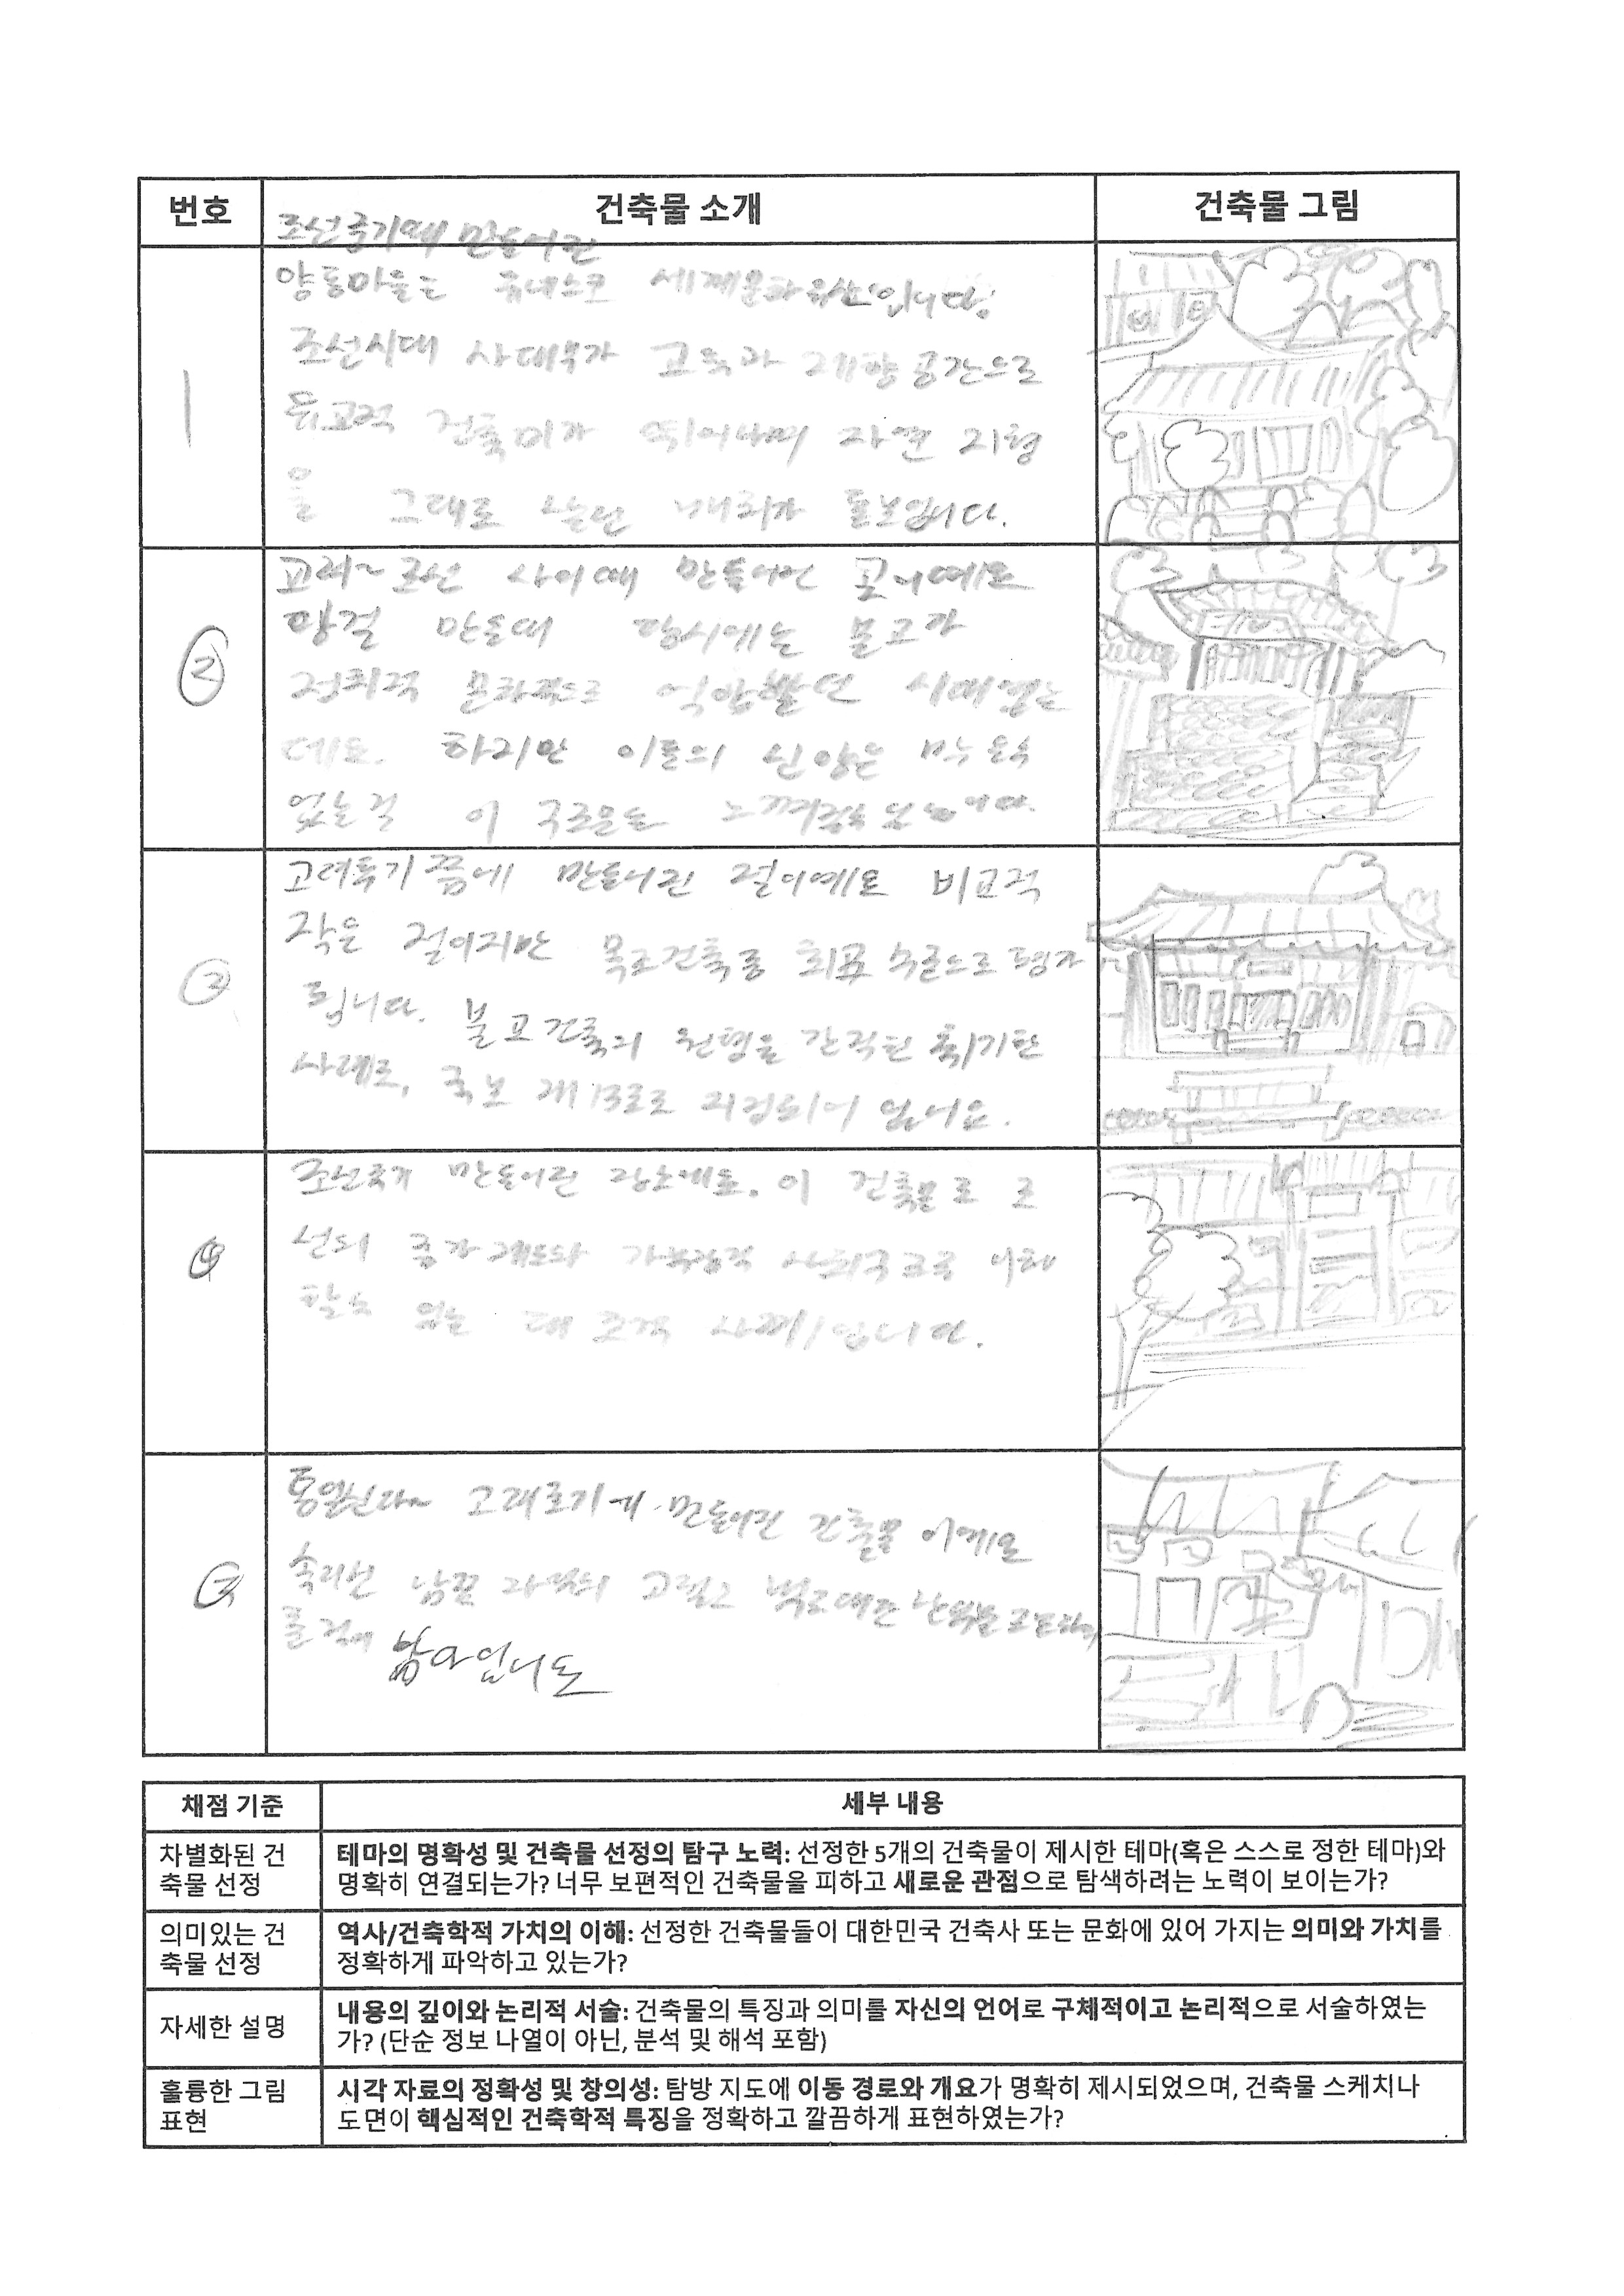 번호 건축물 소개 건축물 그림
조선중기때 만들어진
양동마을은 유네스코 세계문화유산입니다.
1
조선시대 사대부가 교육과 제향공간으로
유교적 건축미가 뛰어나며 자연 지형
을 그대로 살린 배치가 돋보입니다.
고려~조선 사이때 만들어진
만들때 당시에는 불교가
②
정치적 문화적으로 억압받던 시대였는
데요. 하지만 이들의 신앙은 막을수
없는걸 이 구조물을
고려 만들어진 절이에요 비교적
작은 절이지만 목조건축중 최고 수준으로 평가
됩니다. 불교건축의 원형을 간직한 희귀한
사례로, 국보 제13호로 지정되어 있어요.
조선중기 만들어진 이 건축물로 조
④
선의 종가제도와 가부장적 사회구조를 이해
할수 있는 사례입니다.
통일신라~ 고려초기에 만들어진 건축물이에요
남아입니도
채점 기준 세부 내용
차별화된 건 테마의 명확성 및 건축물 선정의 탐구 노력: 선정한 5개의 건축물이 제시한 테마(혹은 스스로 정한 테마)와
축물 선정 명확히 연결되는가? 너무 보편적인 건축물을 피하고 새로운 관점으로 탐색하려는 노력이 보이는가?
의미있는 건 역사/건축학적 가치의 이해: 선정한 건축물들이 대한민국 건축사 또는 문화에 있어 가지는 의미와 가치를
축물 선정 정확하게 파악하고 있는가?
자세한 설명 내용의 깊이와 논리적 서술: 건축물의 특징과 의미를 자신의 언어로 구체적이고 논리적으로 서술하였는
가? (단순 정보 나열이 아닌, 분석 및 해석 포함)
훌륭한 그림 시각 자료의 정확성 및 창의성: 탐방 지도에 이동 경로와 개요가 명확히 제시되었으며, 건축물 스케치나
표현 도면이 핵심적인 건축학적 특징을 정확하고 깔끔하게 표현하였는가?